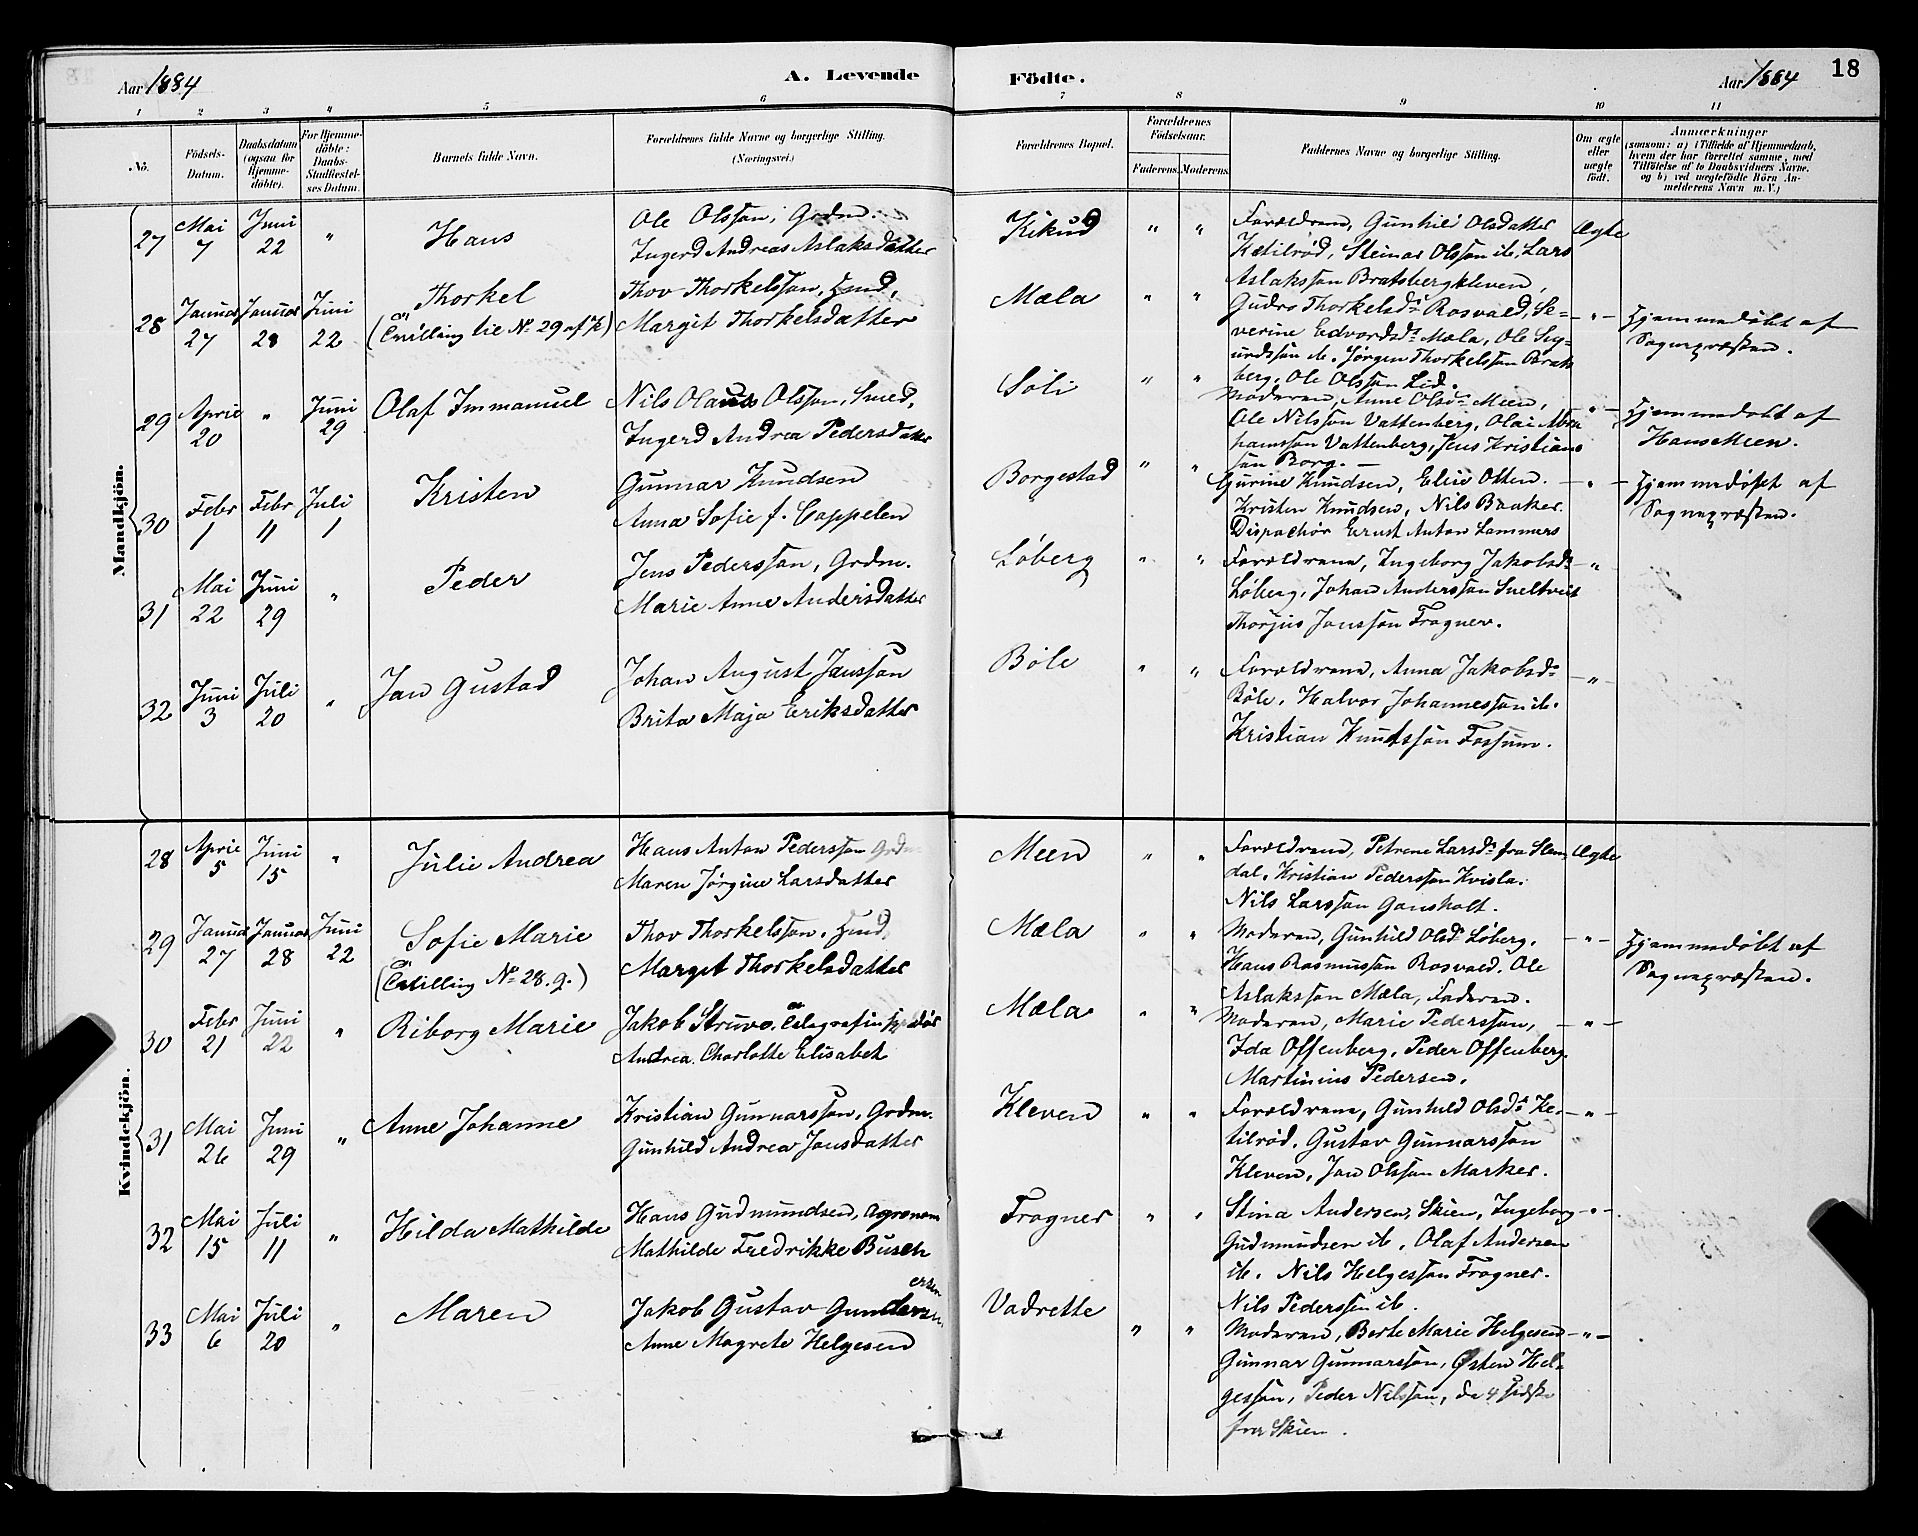 Aar 1884
A. Levende
Födte.
Aar 1884
18
1 2 3 4 5 6 7 8 9 10 11
Nö.
Födsels-
Datum.
Daabsdatum
(ogsaa for
Hjemme-
döbte).
For Hjemme-
döbte:
Daabs-
Stadfæstel-
ses Datum.
Barnets fulde Navn.
Forældrenes fulde Navne og borgerlige Stilling.
(Næringsvei.)
Forældrenes Bopæl.
Forældrenes
Födselsaar.
Faderens. Moderens.
Faddernes Navne og borgerlige Stilling.
Om ægte
eller
uægte
födt.
Anmærkninger
(saasom: a) i Tilfælde af Hjemmedaab,
hvem der har forrettet samme, med
Tilföielse af to Daabsvidners Navne,
og b) ved uægtefödte Börn An-
melderens Navn m. V.)
Mandkjön.
27 Mai 7 Juni 22 " Hans
Ole Olsson, Grdm.
Ingerd Andreas Aslaksdatter
Kikud " "
Forældrene, Gunhild Olsdatter
Ketilrød, Steinar Olsson ib, Lars
Aslaksson Bratsbergkleven,
Ægte
28 Januar 27 Januar 28 Juni 22 Thorkel
(Tvilling til No 29 af K)
Thov Thorkelsson, Hmd,
Margit Thorkelsdatter
Mæla " "
Gudro Thorkelsdr Rosvald, Se-
verine Edvardsdr Mæla, Ole Sig-
urdsson ib. Jørgen Thorkelsson Brats
berg, Ole Olsson Lid.
-"-
Hjemmedøbt af
Sognepræsten.
29 April 20 " Juni 29 Olaf Immanuel
Nils Olaus Olsson, Smed,
Ingerd Andrea Pedersdatter
Søli " "
Moderen, Anne Olsdr Meen,
Ole Nilsson Vattenberg, Olai Abra
hamsson Vattenberg, Jens Kristian-
son Borg. —
-"-
Hjemmedøbt af
Hans Meen.
30 Febr 1 Febr 11 Juli 1 Kristen
Gunnar Knudsen
Anna Sofie f. Cappelen
Borgestad " "
Gurine Knudsen, Elise Otten.
Kristen Knudsen, Nils Baaker
Dispachør Ernst Anton Lammers
-"-
Hjemmedøbt af
Sognepræsten.
31 Mai 22 Juni 29 " Peder
Jens Pedersson, Grdm.
Marie Anne Andersdatter
Løberg " "
Forældrene, Ingeborg Jakobsdr
Løberg, Johan Andersson Sneltveit
Thorjus Jonsson Frogner.
-"-
32 Juni 3 Juli 20 " Jan Gustad
Johan August Jansson
Brita Maja Eriksdatter
Bøle " "
Forældrene, Anna Jakobsdr
Bøle, Halvor Johannesson ib.
Kristian Knutsson Fossum.
-"-
Kvindekjön.
28 April 5 Juni 15 " Julie Andrea
Hans Anton Pedersson Grdm
Maren Jørgine Larsdatter
Meen " "
Forældrene, Petrene Larsdr fra Slem
dal, Kristian Pedersson Kvisla.
Nils Larsson Gonsholt.
Ægte
29 Januar 27 Januar 28 Juni 22 Sofie Marie
(Tvilling No 28. g.)
Thov Thorkelsson, Hmd,
Margit Thorkelsdatter
Mæla " "
Moderen, Gunhild Olsdr Løberg,
Hans Rasmusson Rosvald, Ole
Aslaksson Mæla, Faderen.
-"-
Hjemmedøbt af
Sognepræsten.
30 Febr 21 Juni 22 " Riborg Marie
Jakob Struve,
Andrea Charlotte Elisabet
Mæla " "
Moderen, Marie Pedersson,
Ida Offenberg, Peder Offenberg.
Martinius Pedersen.
-"-
31 Mai 26 Juni 29 " Anne Johanne
Kristian Gunnarsson, Grdm.
Gunhild Andrea Jonsdatter
Kleven " "
Forældrene, Gunhild Olsdr Ke-
tilrød, Gustav Gunnarsson
Kleven, Jan Olsson Marker.
-"-
32 Mai 15 Juli 11 " Hilda Mathilde
Hans Gudmundsen, Agronom
Mathilde Fredrikke Busch
Frogner " "
Stina Andersen, Skien, Ingeborg
Gudmundsen ib, Olaf Andersen
ib. Nils Helgesson Frogner.
Nils Pedersson ib.
-"-
33 Mai 6 Juli 20 " Maren
Jakob Gustav Gundersen
Anne Magrete Helgesen
Vadrette " "
Moderen, Berte Marie Helgesen
Gunnar Gunnarsson, Østen Hel-
gesson, Peder Nilsson, de 4 sidste
fra Skien.
-"-